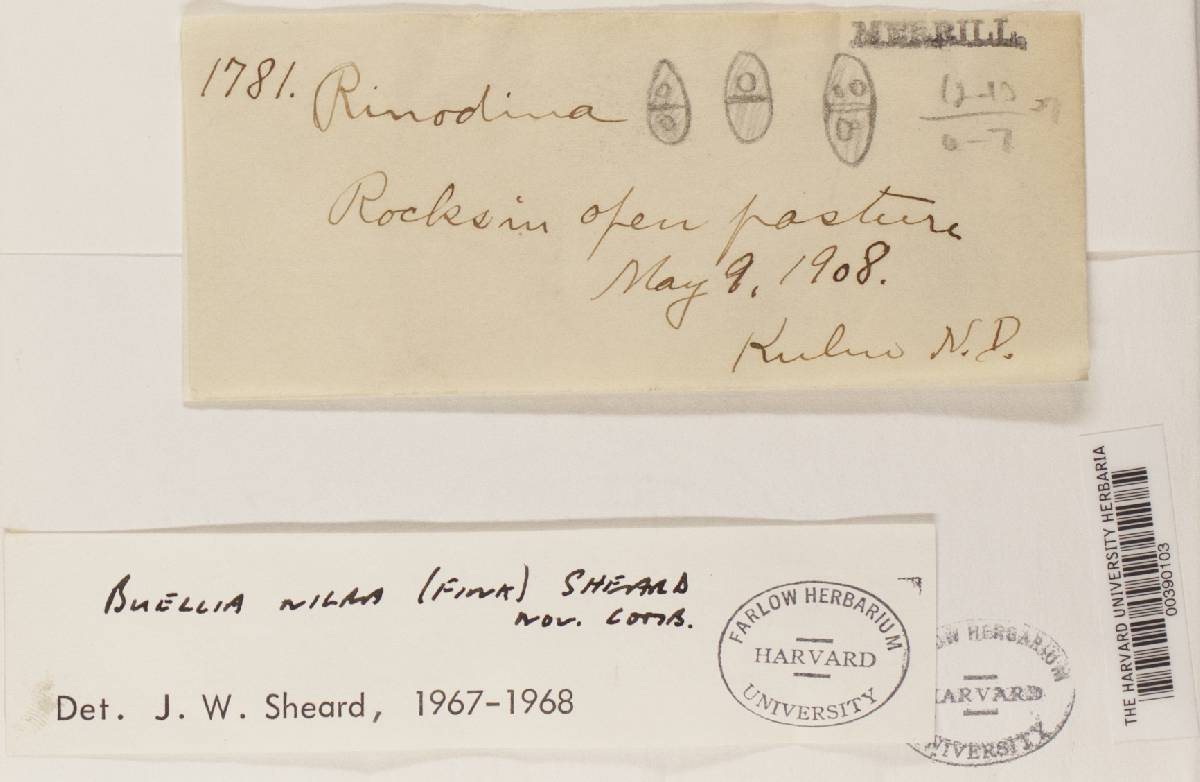 MERRILL.
1781. Rinodina
12-15
6-7
Rocks in open pasture
May 9, 1908.
N.D.
THE HARVARD UNIVERSITY HERBARIA
00390103
BUELLIA NIGRA (FINK) SHEARD
NOV. COMB.
Det. J. W. Sheard, 1967-1968
FARLOW HERBARIUM
HARVARD
UNIVERSITY
HERBARIUM
HARVARD
UNIVERSITY